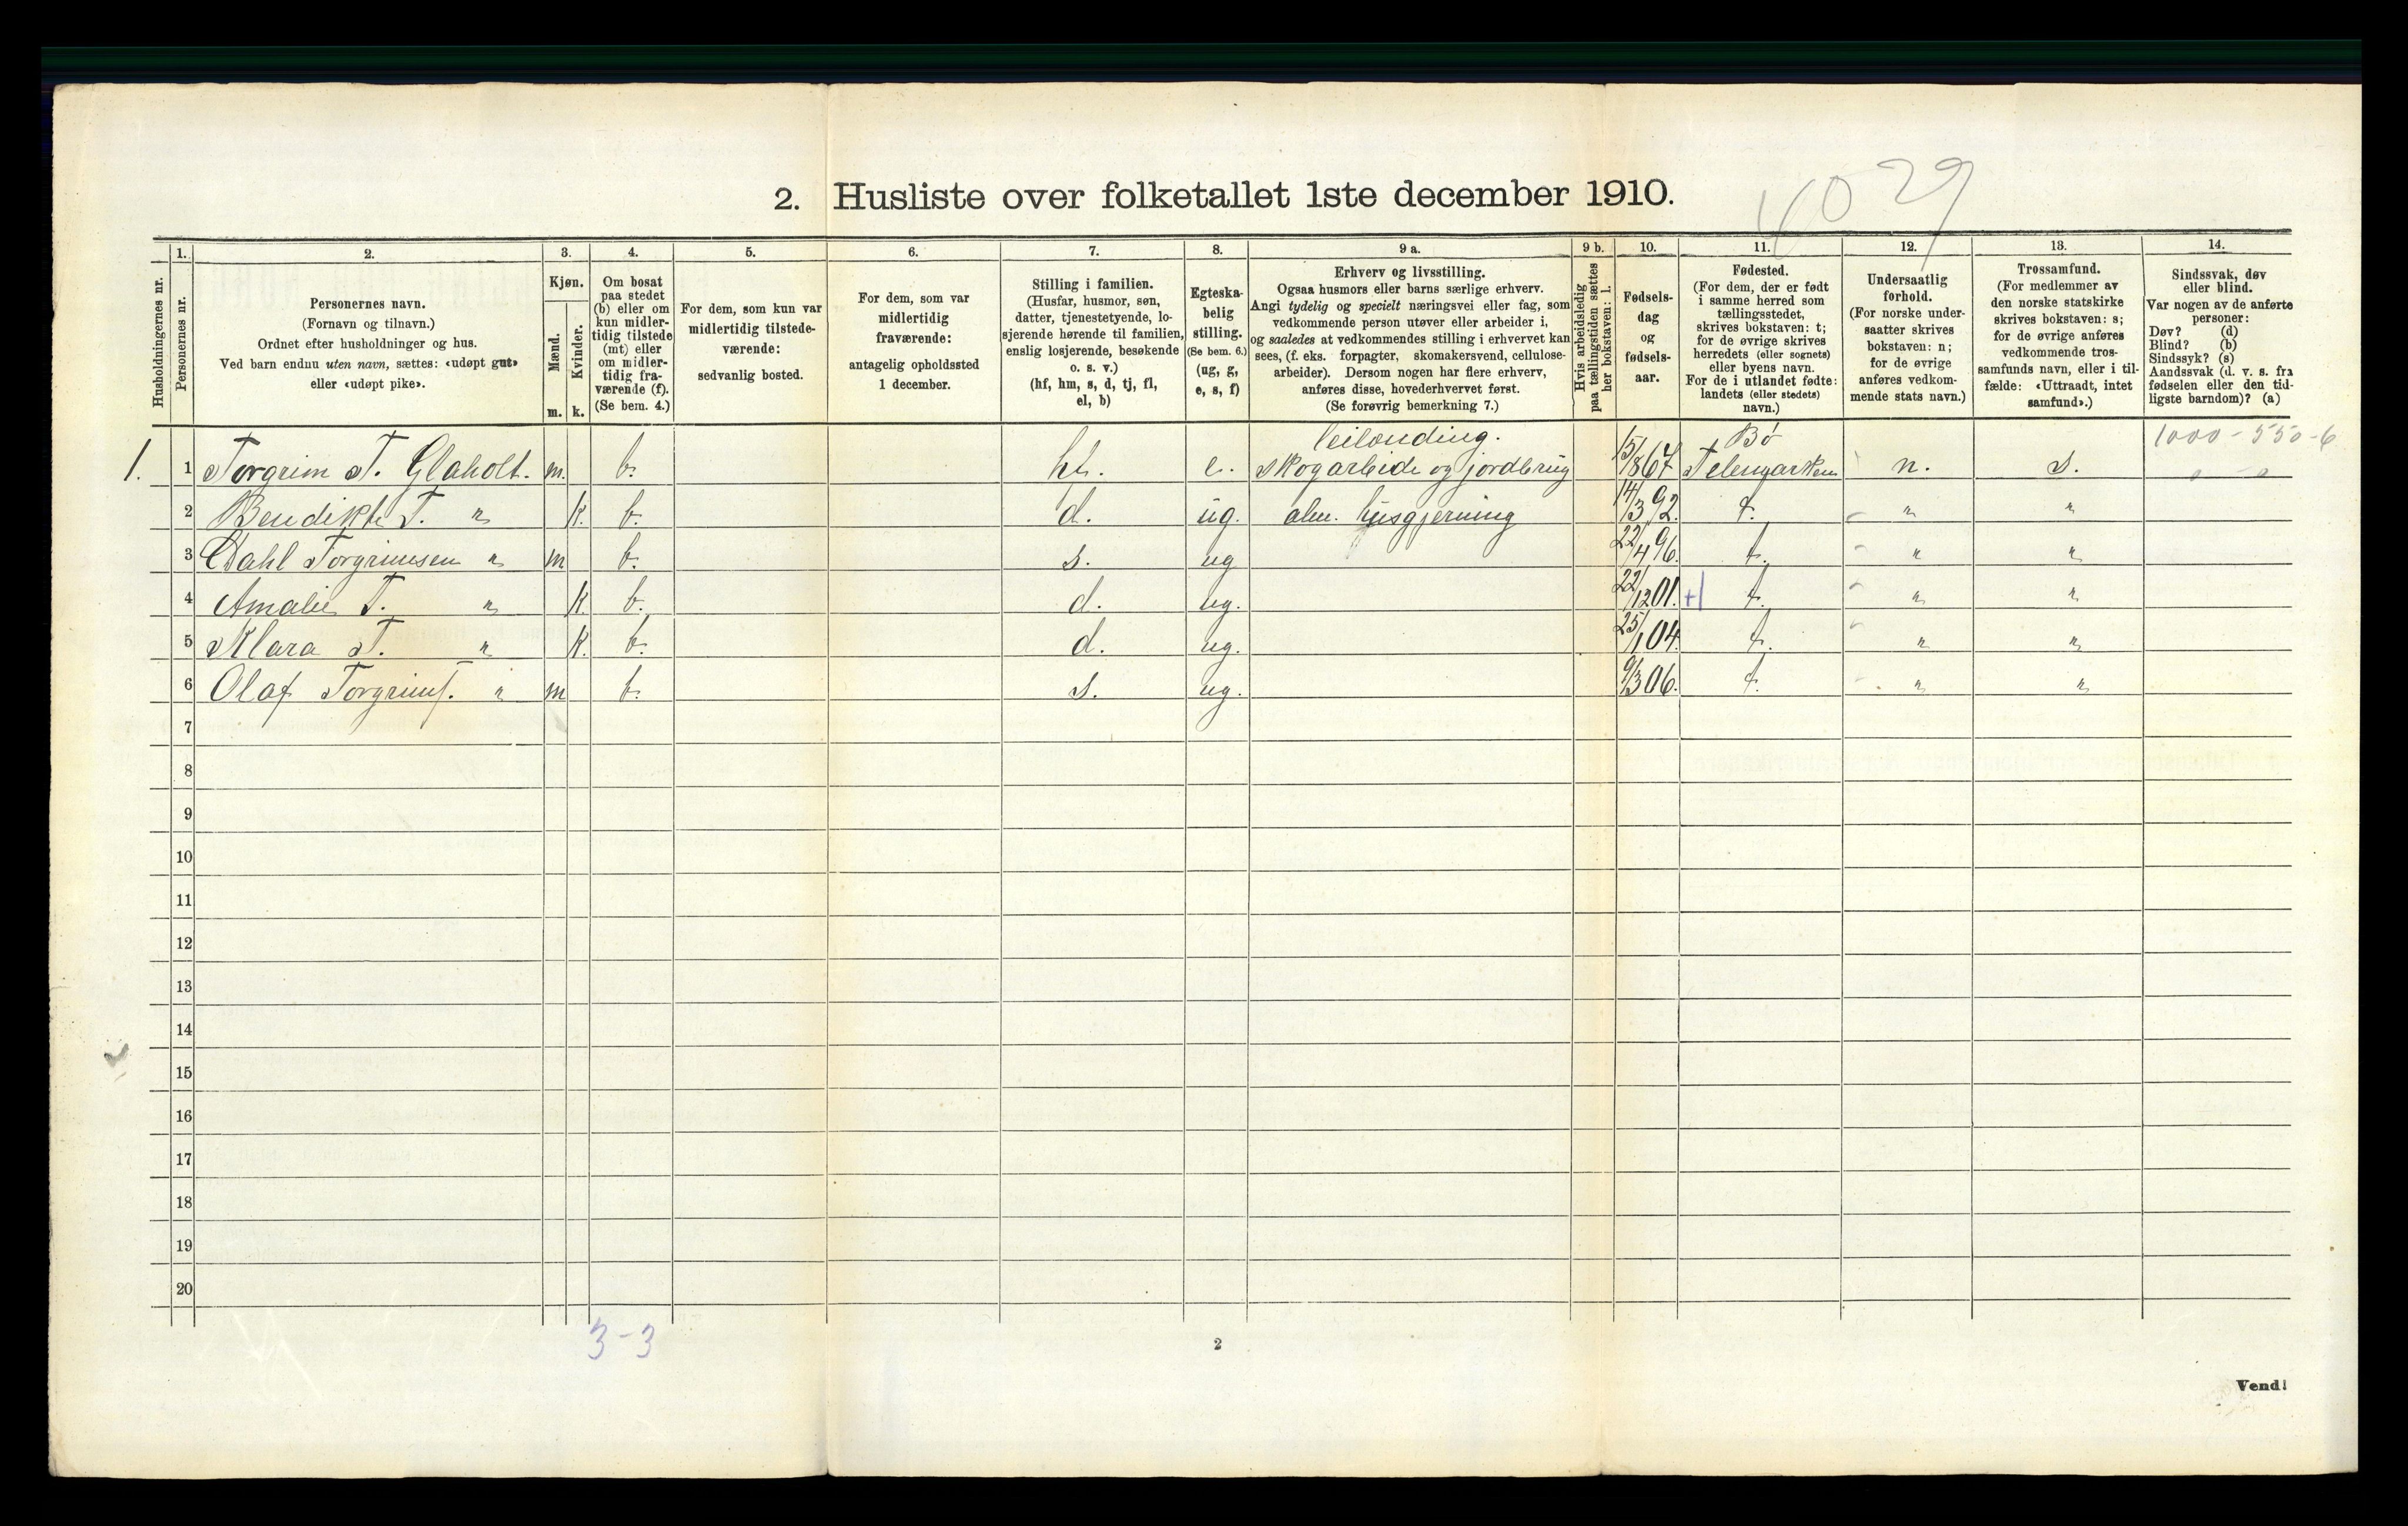 2. Husliste over folketallet 1ste december 1910.
Husholdningernes nr.
1.
Personernes nr.
2.
Personernes navn.
(Fornavn og tilnavn.)
Ordnet efter husholdninger og hus.
Ved barn endnu uten navn, sættes: «udøpt gut»
eller «udøpt pike».
3.
Kjøn.
Mænd.
Kvinder.
m. k.
4.
Om bosat
paa stedet
(b) eller om
kun midler-
tidig tilstede
(mt) eller
om midler-
tidig fra-
værende (f).
(Se bem. 4.)
5.
For dem, som kun var
midlertidig tilstede-
værende:
sedvanlig bosted.
6.
For dem, som var
midlertidig
fraværende:
antagelig opholdssted
1 december.
7.
Stilling i familien.
(Husfar, husmor, søn,
datter, tjenestetyende, lo-
sjerende hørende til familien,
enslig losjerende, besøkende
o. s. v.)
(hf, hm, s, d, tj, fl,
el, b)
8.
Egteska-
belig
stilling.
(Se bem. 6.)
(ug, g,
e, s, f)
9 a.
Erhverv og livsstilling.
Ogsaa husmors eller barns særlige erhverv.
Angi tydelig og specielt næringsvei eller fag, som
vedkommende person utøver eller arbeider i,
og saaledes at vedkommendes stilling i erhvervet kan
sees, (f. eks. forpagter, skomakersvend, cellulose-
arbeider). Dersom nogen har flere erhverv,
anføres disse, hovederhvervet først.
(Se forøvrig bemerkning 7.)
9 b.
Hvis arbeidsledig
paa tællingstiden sættes
her bokstaven: l.
10.
Fødsels-
dag
og
fødsels-
aar.
11.
Fødested.
(For dem, der er født
i samme herred som
tællingsstedet,
skrives bokstaven: t;
for de øvrige skrives
herredets (eller sognets)
eller byens navn.
For de i utlandet fødte:
landets (eller stedets)
navn.)
12.
Undersaatlig
forhold.
(For norske under-
saatter skrives
bokstaven: n;
for de øvrige
anføres vedkom-
mende stats navn.)
13.
Trossamfund.
(For medlemmer av
den norske statskirke
skrives bokstaven: s;
for de øvrige anføres
vedkommende tros-
samfunds navn, eller i til-
fælde: «Uttraadt, intet
samfund».)
14.
Sindssvak, døv
eller blind.
Var nogen av de anførte
personer:
Døv? (d)
Blind? (b)
Sindssyk? (s)
Aandssvak (d. v. s. fra
fødselen eller den tid-
ligste barndom)? (a)
leilending. Bø 1000 - 550 - 6
1. 1 Torgrim T. Glaholt. m. b. hf. e. skogarbeide og jordbrug 15/8 67 Telemarken n. s.
2 Bendikte T. " k. b. d. ug. alm. husgjerning 14/3 92. t. " "
3 Dahl Torgrimsen " m b. s. ug 22/4 96. t. " "
4 Amalie T. " k. b. d. ug. 22/12 01. t. " "
5 Klara T. " k. b. d. ug. 25/1 04. t. " "
6 Olaf Torgrims. " m b. s. ug. 9/3 06. t. " "
7
8
9
10
11
12
13
14
15
16
17
18
19
20
3-3
2
Vend!